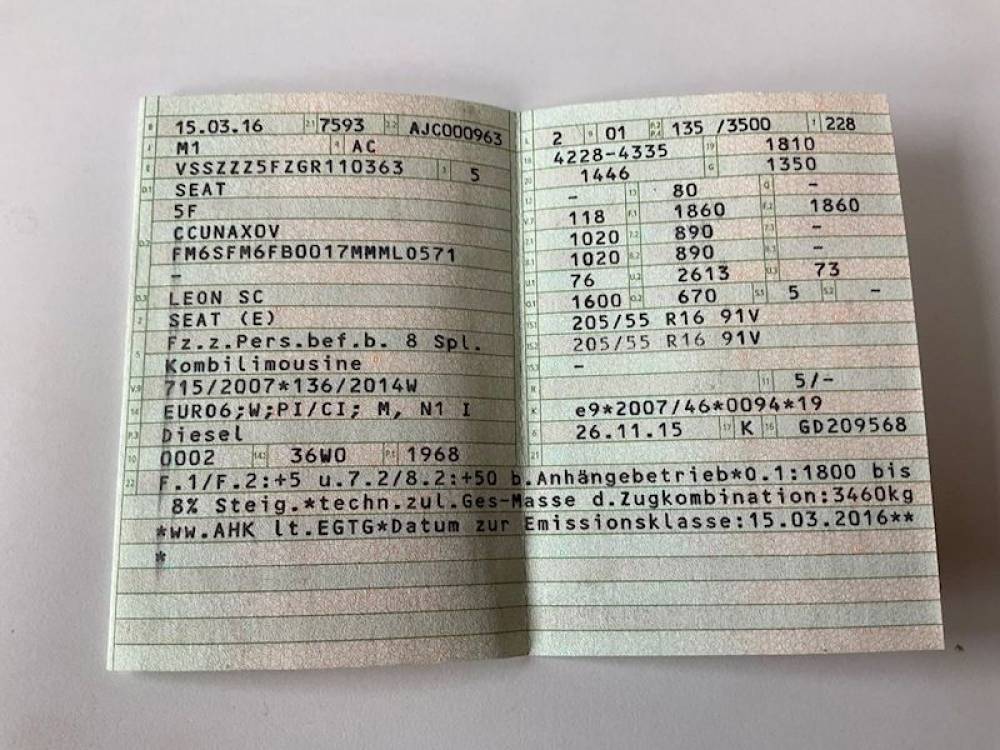 15.03.16 7593 AJC000963
M1 AC
VSSZZZ5FZGR110363 5
SEAT
5F
CCUNAXOV
FM6SFM6FB0017MMML0571
–
LEON SC
SEAT (E)
Fz.z.Pers.bef.b. 8 Spl.
Kombilimousine
715/2007*136/2014W
EURO6;W;PI/CI; M, N1 I
Diesel
0002 36W0 1968
2 01 135 /3500 228
4228-4335 1810
1446 1350
– 80 –
118 1860 1860
1020 890 –
1020 890 –
76 2613 73
1600 670 5 –
205/55 R16 91V
205/55 R16 91V
–
5/–
e9*2007/46*0094*19
26.11.15 K GD209568
F.1/F.2:+5 u.7.2/8.2:+50 b.Anhängebetrieb*O.1:1800 bis
8% Steig.*techn.zul.Ges-Masse d.Zugkombination:3460kg
*ww.AHK lt.EGTG*Datum zur Emissionsklasse:15.03.2016**
*